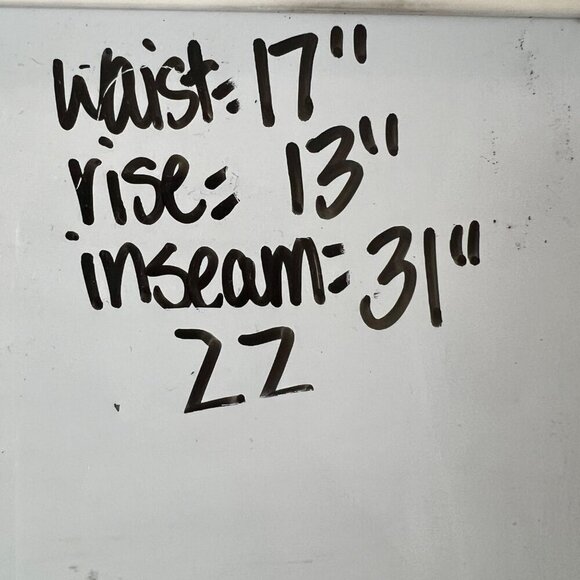 waist=17"
rise= 13"
inseam=31"
22